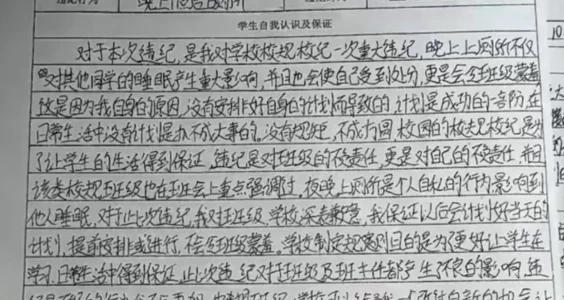 晚上10点后上厕所
学生自我认识及保证
对于本次违纪,是我对学校校规校纪一次重大违纪,晚上上厕所不仅
对其他同学的睡眠产生重大影响,并且也会使自己受到处分,更是会给班级蒙羞
这是因为我自身的原因,没有安排好自身的计划而导致的,计划是成功的台阶,在
日常生活中没有计划是办不成大事的。没有规矩,不成方圆,校园的校规校纪是为
了让学生的生活得到保证,违纪是对班级的不负责任,更是对自己的不负责任,并且
该类校规班级也在班会上重点强调过,夜晚上厕所是个人自私的行为,影响到
他人睡眠,对于此次违纪,我对班级、学校深表歉意,我保证以后会计划好当天的
计划,提前安排或进行,不给班级蒙羞。学校制定规章则目的是为更好让学生在
学习、日常生活中得到保证,此次违纪对于班级及班主任都产生不良的影响,违